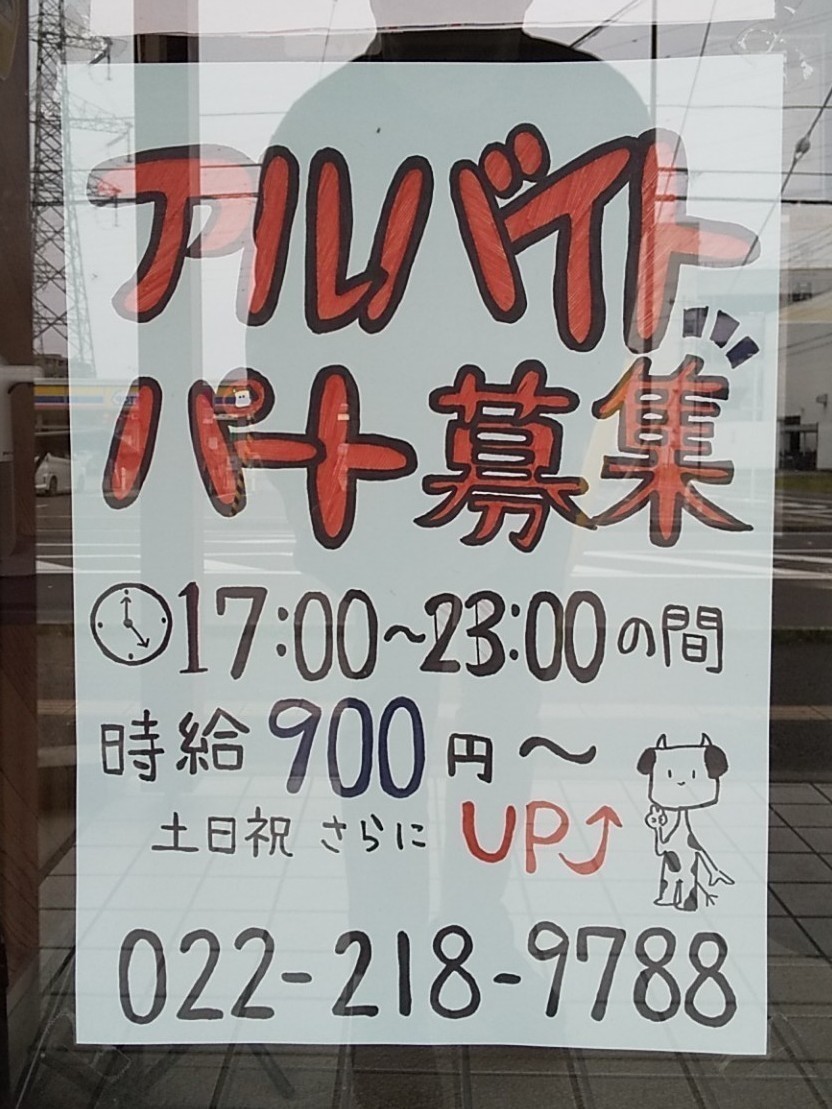 アルバイト
パート募集
17:00~23:00の間
時給900円~
土日祝 さらに UP
022-218-9788